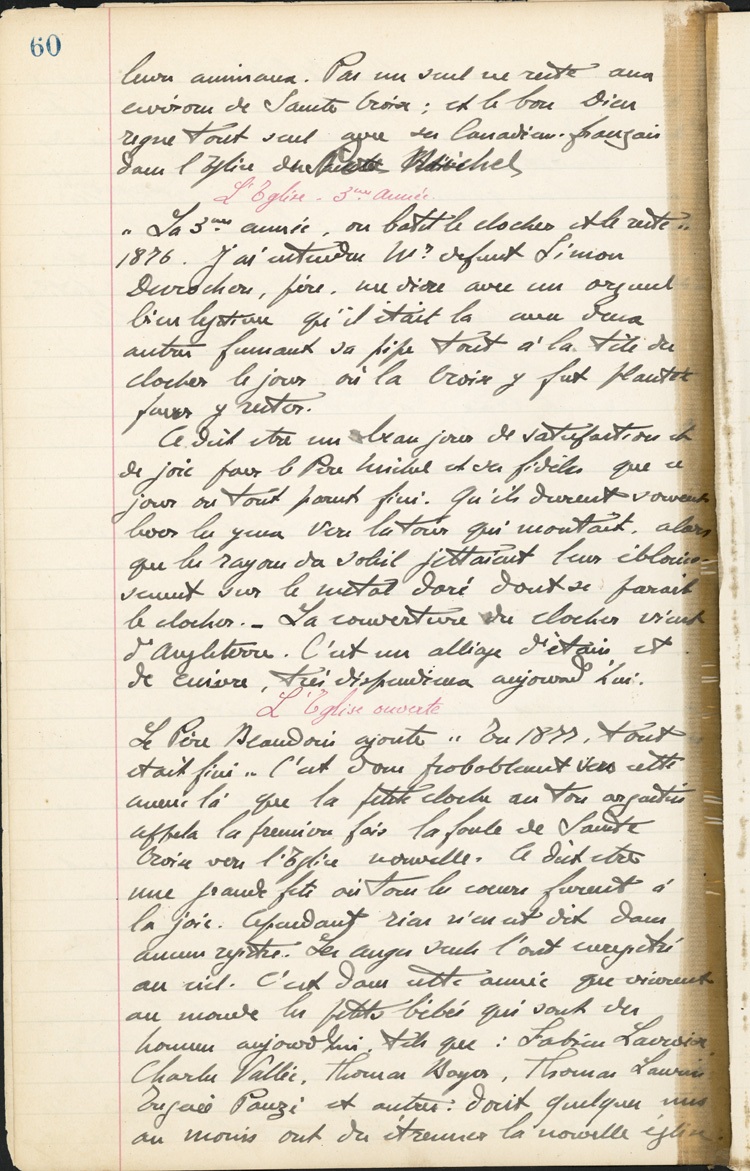 60
leurs animaux. Pas un seul ne reste aux
environs de Sainte Croix ; et le bon Dieu
regne tout seul avec ses Canadiens-français
dans l'Eglise du Père Michel
L'Eglise - 3me Année.
" La 3me année, on batit le clocher et le reste "
1876. J'ai entendu Mr defunt Simon
Desrochers, père, me dire avec un orgueil
bien légitime qu'il était la avec deux
autres fumant sa pipe tout à la tête du
clocher le jour où la Croix y fut plantée
pour y rester.
Ce dût etre un beau jour de satisfaction et
de joie pour le Père Michel et ses fidèles que ce
jour ou tout parut fini. Qu'ils durent souvent
lever les yeux vers la tour qui montait, alors
que les rayons du soleil jettaient leur éblouis-
sement sur le métal doré dont se parait
le clocher. - La couverture du clocher vient
d'Angleterre. C'est un alliage d'étain et
de cuivre, très dispendieux aujourd'hui.
L'Eglise ouverte
Le Père Beaudoin ajoute " En 1877, tout
etait fini " C'est donc probablement vers cette
année là que la petite cloche au ton argentin
appela la première fois la foule de Sainte
Croix vers l'Eglise nouvelle. Ce dût etre
une grande fête où tous les coeurs furent à
la joie. Cependant rien n'en est dit dans
aucun registre. Les anges seuls l'ont enregistré
au ciel. C'est dans cette année que vinrent
au monde les petits bébés qui sont des
hommes aujourd'hui, tels que : Fabien
Charles Vallée, Thomas Boyer, Thomas
Eugène Pauzé et autres : dont quelques uns
au moins ont du étrenner la nouvelle église.